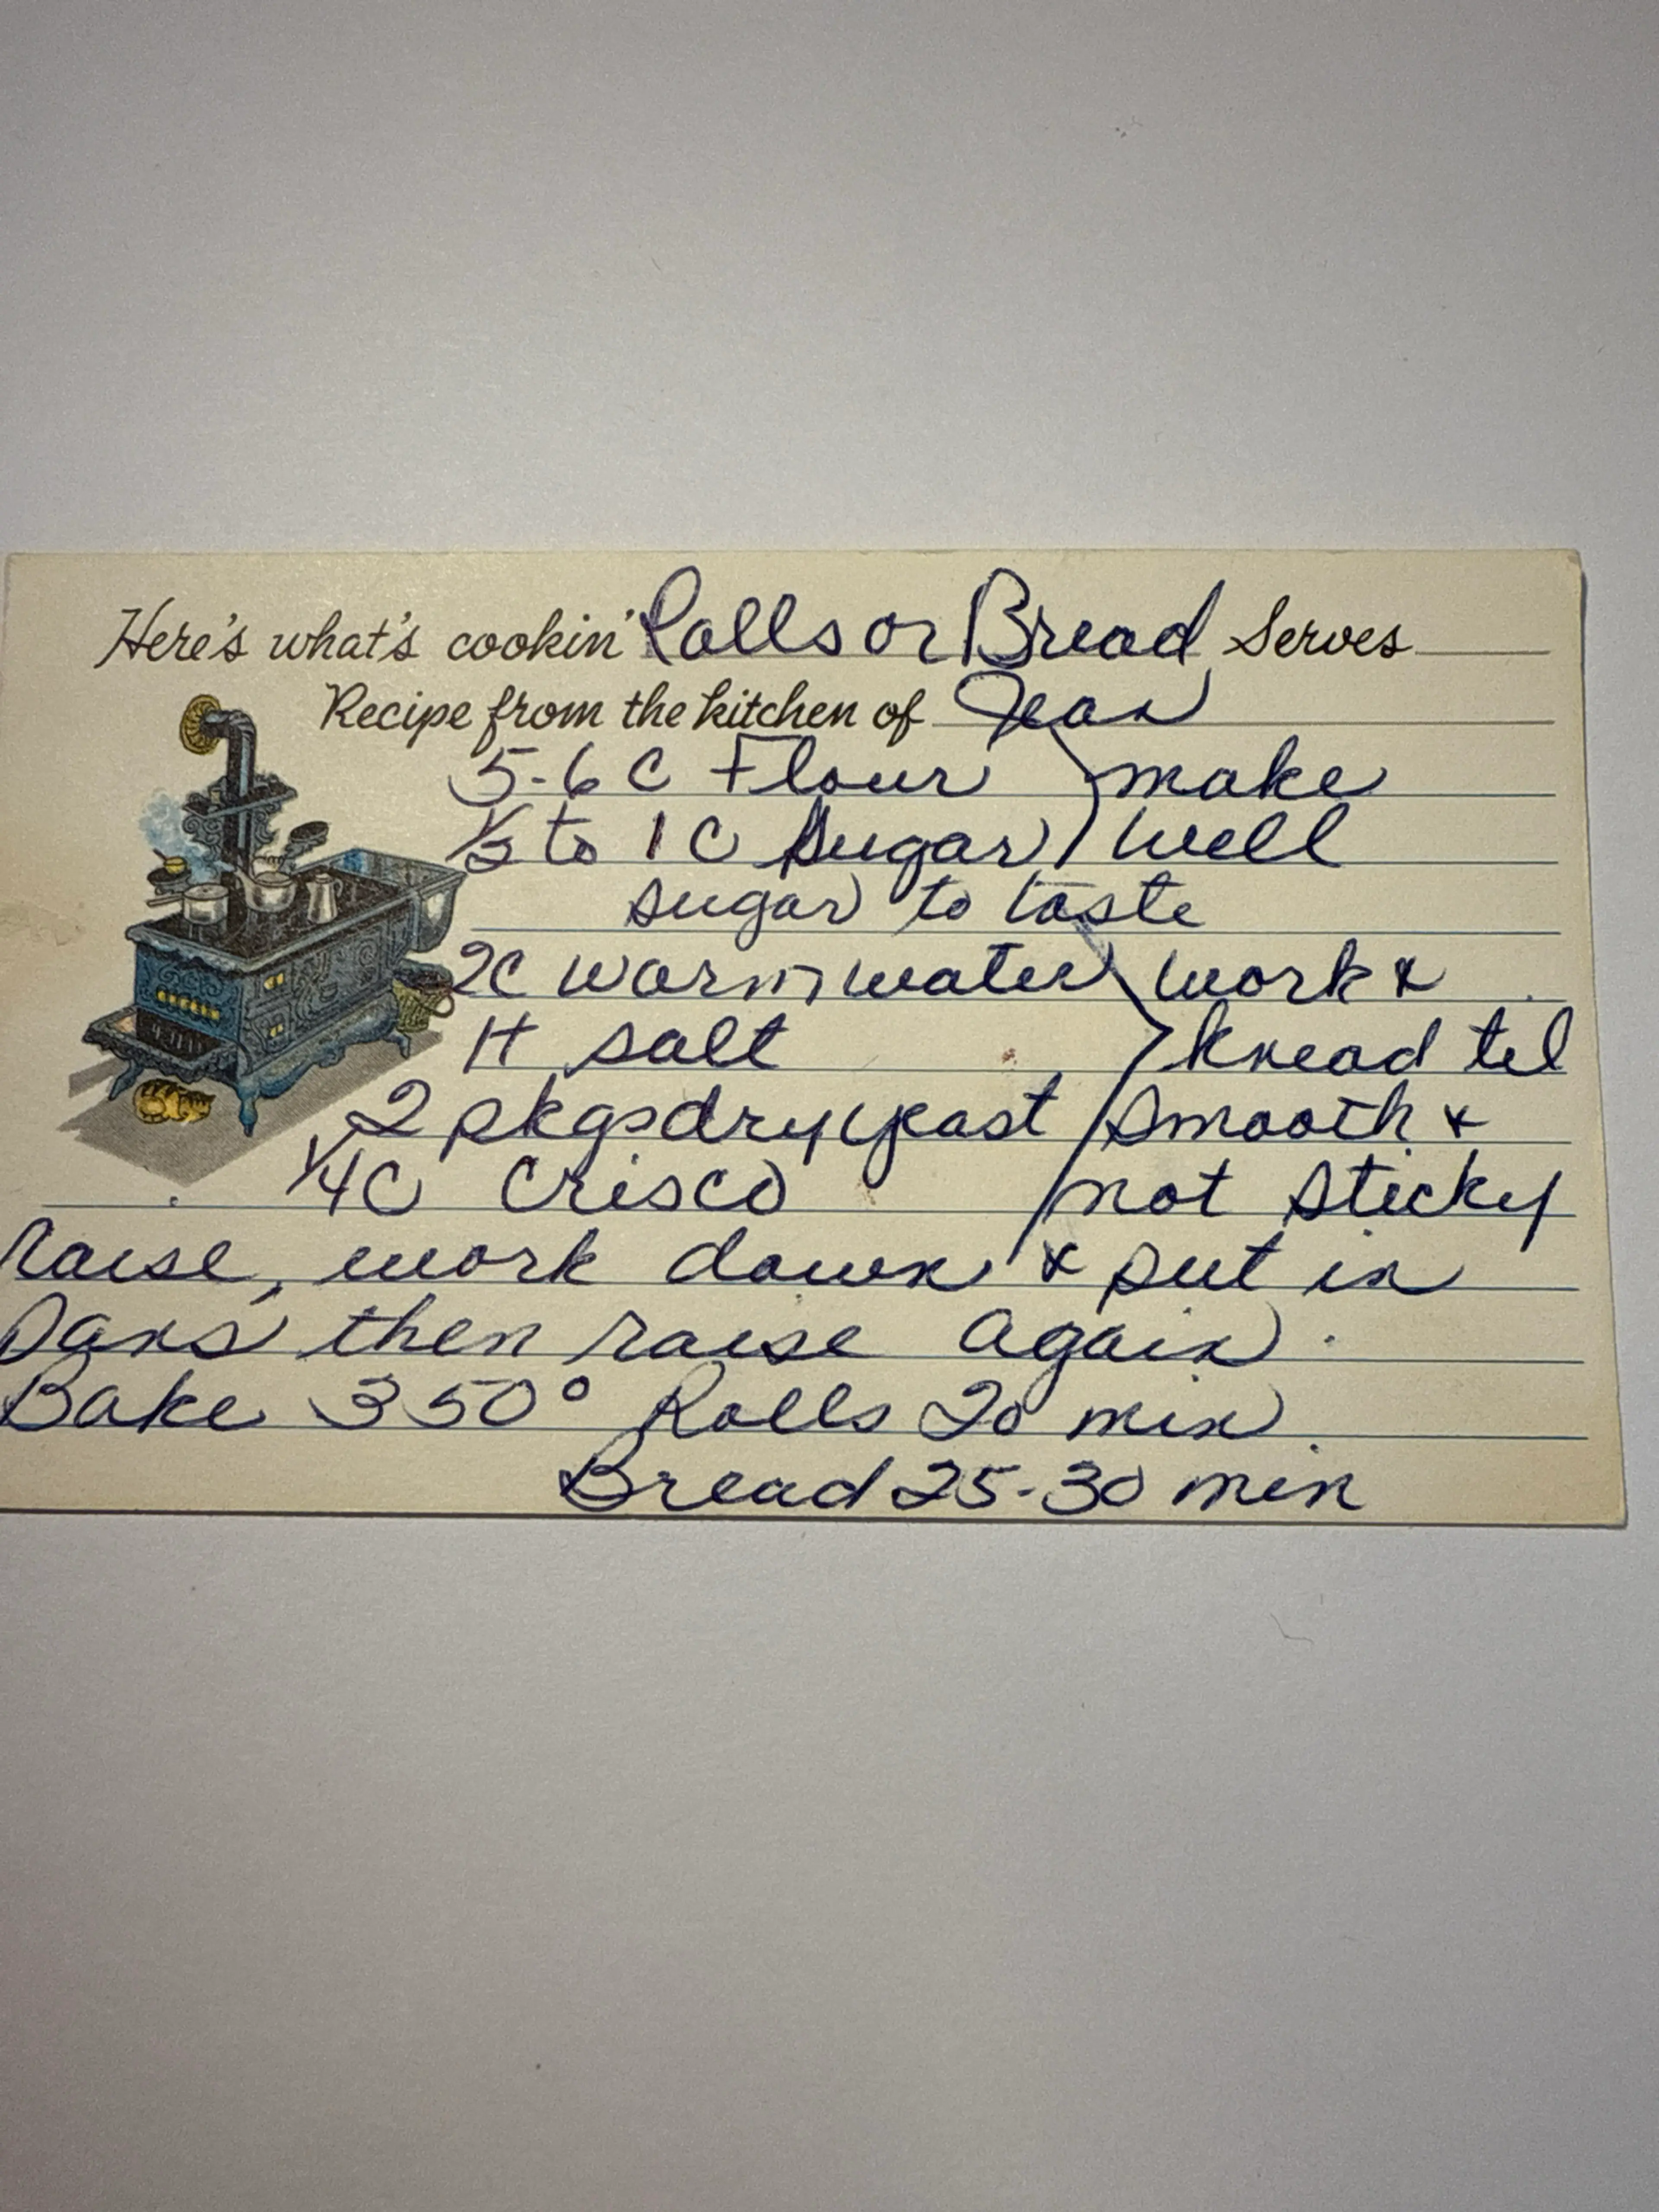 Here's what's cookin' Rolls or Bread Serves
Recipe from the kitchen of Jean
5-6 C Flour make
1/2 to 1 C sugar well
sugar to taste
2C warm water work &
1t salt knead til
2 pkgs dry yeast smooth &
1/4C Crisco not sticky
raise, work down & put in
Pans then raise again.
Bake 350° Rolls 20 min.
Bread 25-30 min